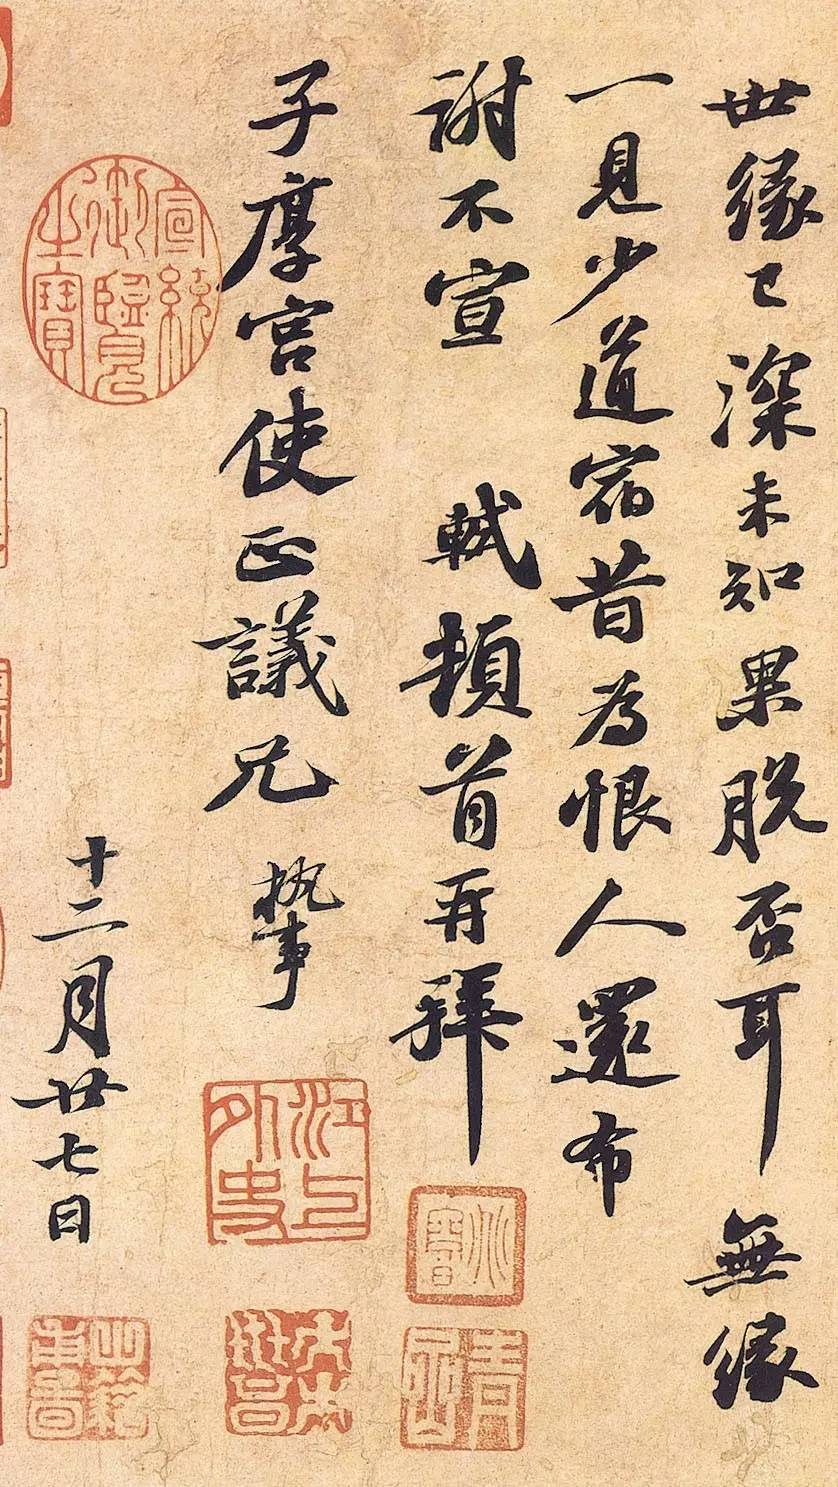 世緣已深未知果脫否耳無緣
一見少道宿昔為恨人還布
謝不宣 軾頓首再拜
子厚宮使正議兄執事
十二月廿七日
宣統御覽之寶
江上外史